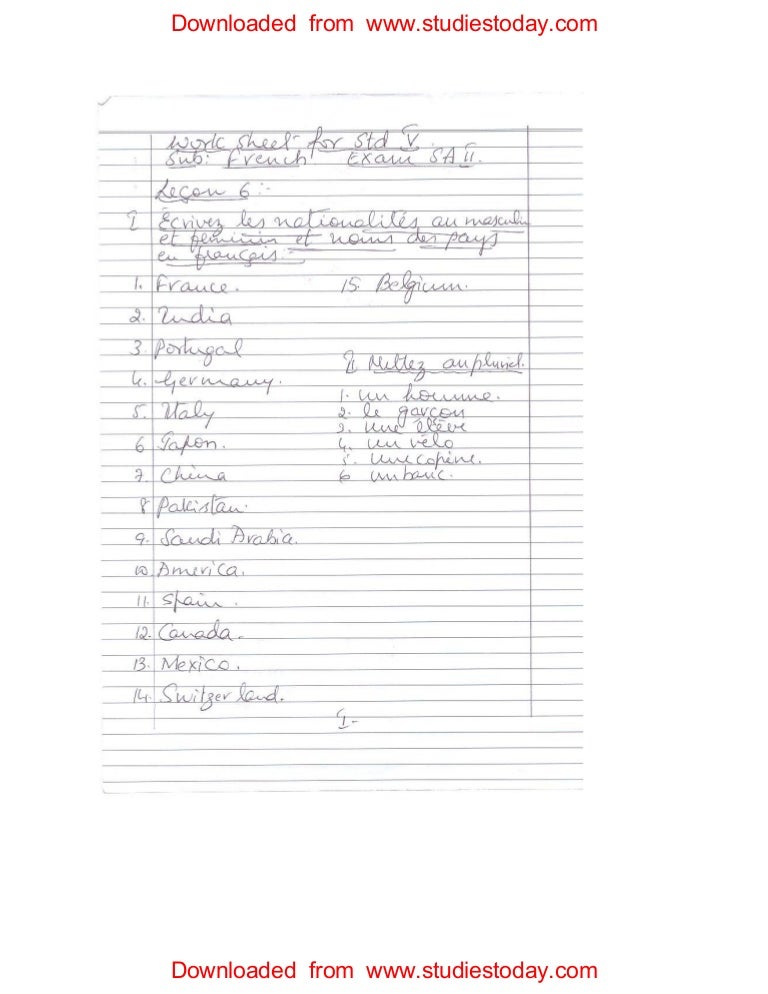 Downloaded from www.studiestoday.com
Work Sheet for Std V.
Sub: French Exam SA II.
Leçon 6:-
I Écrivez les nationalités au masculin
et féminin et noms des pays
en français.
1. France.
2. India
3. Portugal
4. Germany.
5. Italy
6 Japon.
7. China
8 Pakistan.
9. Saudi Arabia.
10. America.
11. Spain.
12. Canada.
13. Mexico.
14. Switzerland.
15. Belgium.
II Mettez au pluriel.
1. un homme.
2. le garçon
3. une élève
4. un vélo
5. une copine.
6 un banc.
I-
Downloaded from www.studiestoday.com